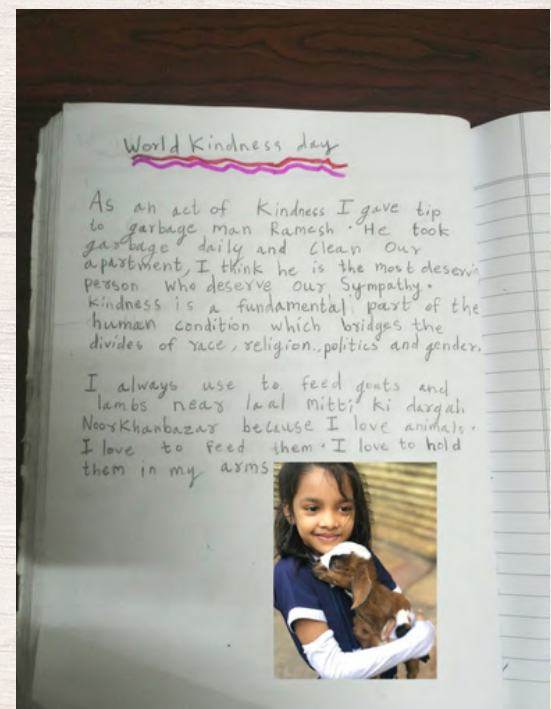 World Kindness day
As an act of Kindness I gave tip
to garbage man Ramesh. He took
garbage daily and Clean Our
apartment, I think he is the most deservi
person who deserve our Sympathy.
Kindness is a fundamental part of the
human condition which bridges the
divides of race, religion, politics and gender.
I always use to feed goats and
lambs near laal mitti ki dargah
NoorKhanbazar because I love animals.
I love to feed them. I love to hold
them in my arms